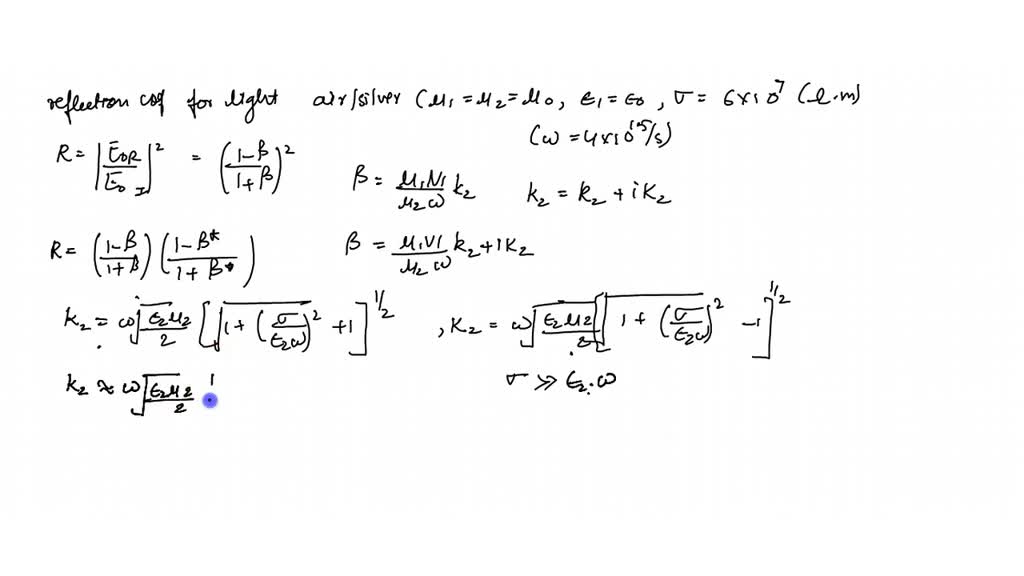 reflection coef for light air/silver (μ₁ = μ₂ = μ₀, ε₁ = ε₀, σ = 6×10⁷ (Ω.m)
(ω = 4×10¹⁵/s)
R = |E₀R/E₀I|² = ((1-β)/(1+β))² β = (μ₁v₁/μ₂ω) k₂ k₂ = k₂ + iK₂
R = ((1-β)/(1+β)) ((1-β*)/(1+β*)) β = (μ₁v₁/μ₂ω) k₂ + iK₂
k₂ = ω√(ε₂μ₂/2) [√(1 + (σ/ε₂ω)²) + 1]^1/2 , K₂ = ω√(ε₂μ₂/2) [√(1 + (σ/ε₂ω)²) - 1]^1/2
k₂ ≈ ω√(ε₂μ₂/2) σ ≫ ε₂.ω